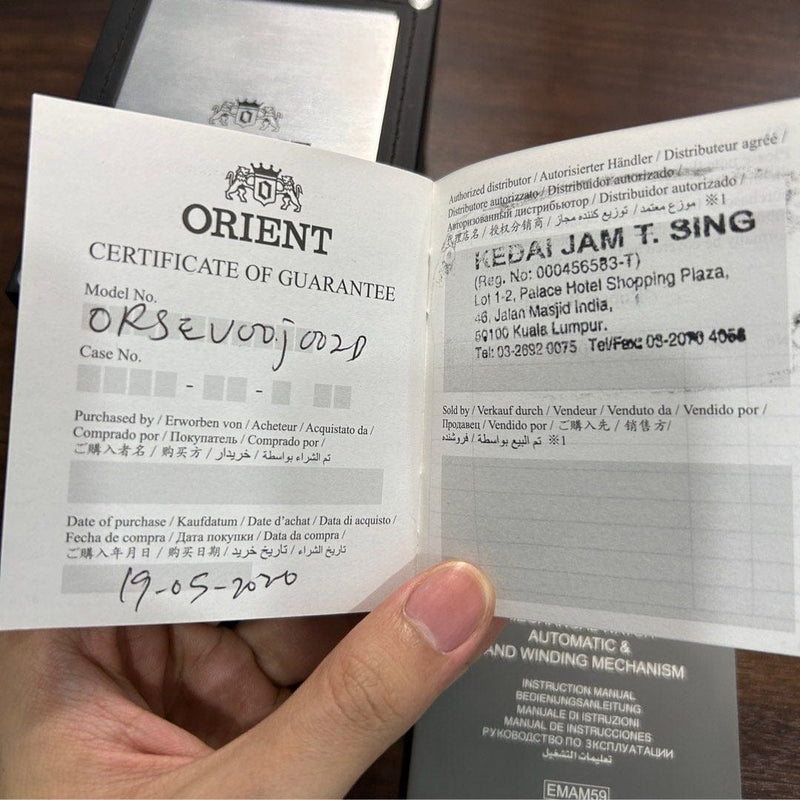 ORIENT
CERTIFICATE OF GUARANTEE
Model No.
ORSEV00j002D
Case No.
- - -
Purchased by / Erworben von / Acheteur / Acquistato da /
Comprado por / Покупатель / Comprado por /
ご購入者名 / 购买方 / خریدار / تم الشراء بواسطة
Date of purchase / Kaufdatum / Date d'achat / Data di acquisto /
Fecha de compra / Дата покупки / Data da compra /
ご購入年月日 / 购买日期 / تاریخ خرید / تاريخ الشراء
19-05-2020
Authorized distributor / Autorisierter Händler / Distributeur agréé /
Distributore autorizzato / Distribuidor autorizado /
Авторизованный дистрибьютор / Distribuidor autorizado /
代理店名 / 授权分销商 / توزیع کننده مجاز / موزع معتمد ※1
KEDAI JAM T. SING
(Reg. No: 000456583-T)
Lot 1-2, Palace Hotel Shopping Plaza,
46, Jalan Masjid India,
50100 Kuala Lumpur.
Tel: 03-2692 0075 Tel/Fax: 03-2070 4058
Sold by / Verkauf durch / Vendeur / Venduto da / Vendido por /
Продавец / Vendido por / ご購入先 / 销售方/
تم البيع بواسطة / فروشنده ※1
AUTOMATIC &
AND WINDING MECHANISM
INSTRUCTION MANUAL
BEDIENUNGSANLEITUNG
MANUALE DI ISTRUZIONI
MANUAL DE INSTRUCCIONES
РУКОВОДСТВО ПО ЭКСПЛУАТАЦИИ
تعليمات التشغيل
EMAM59